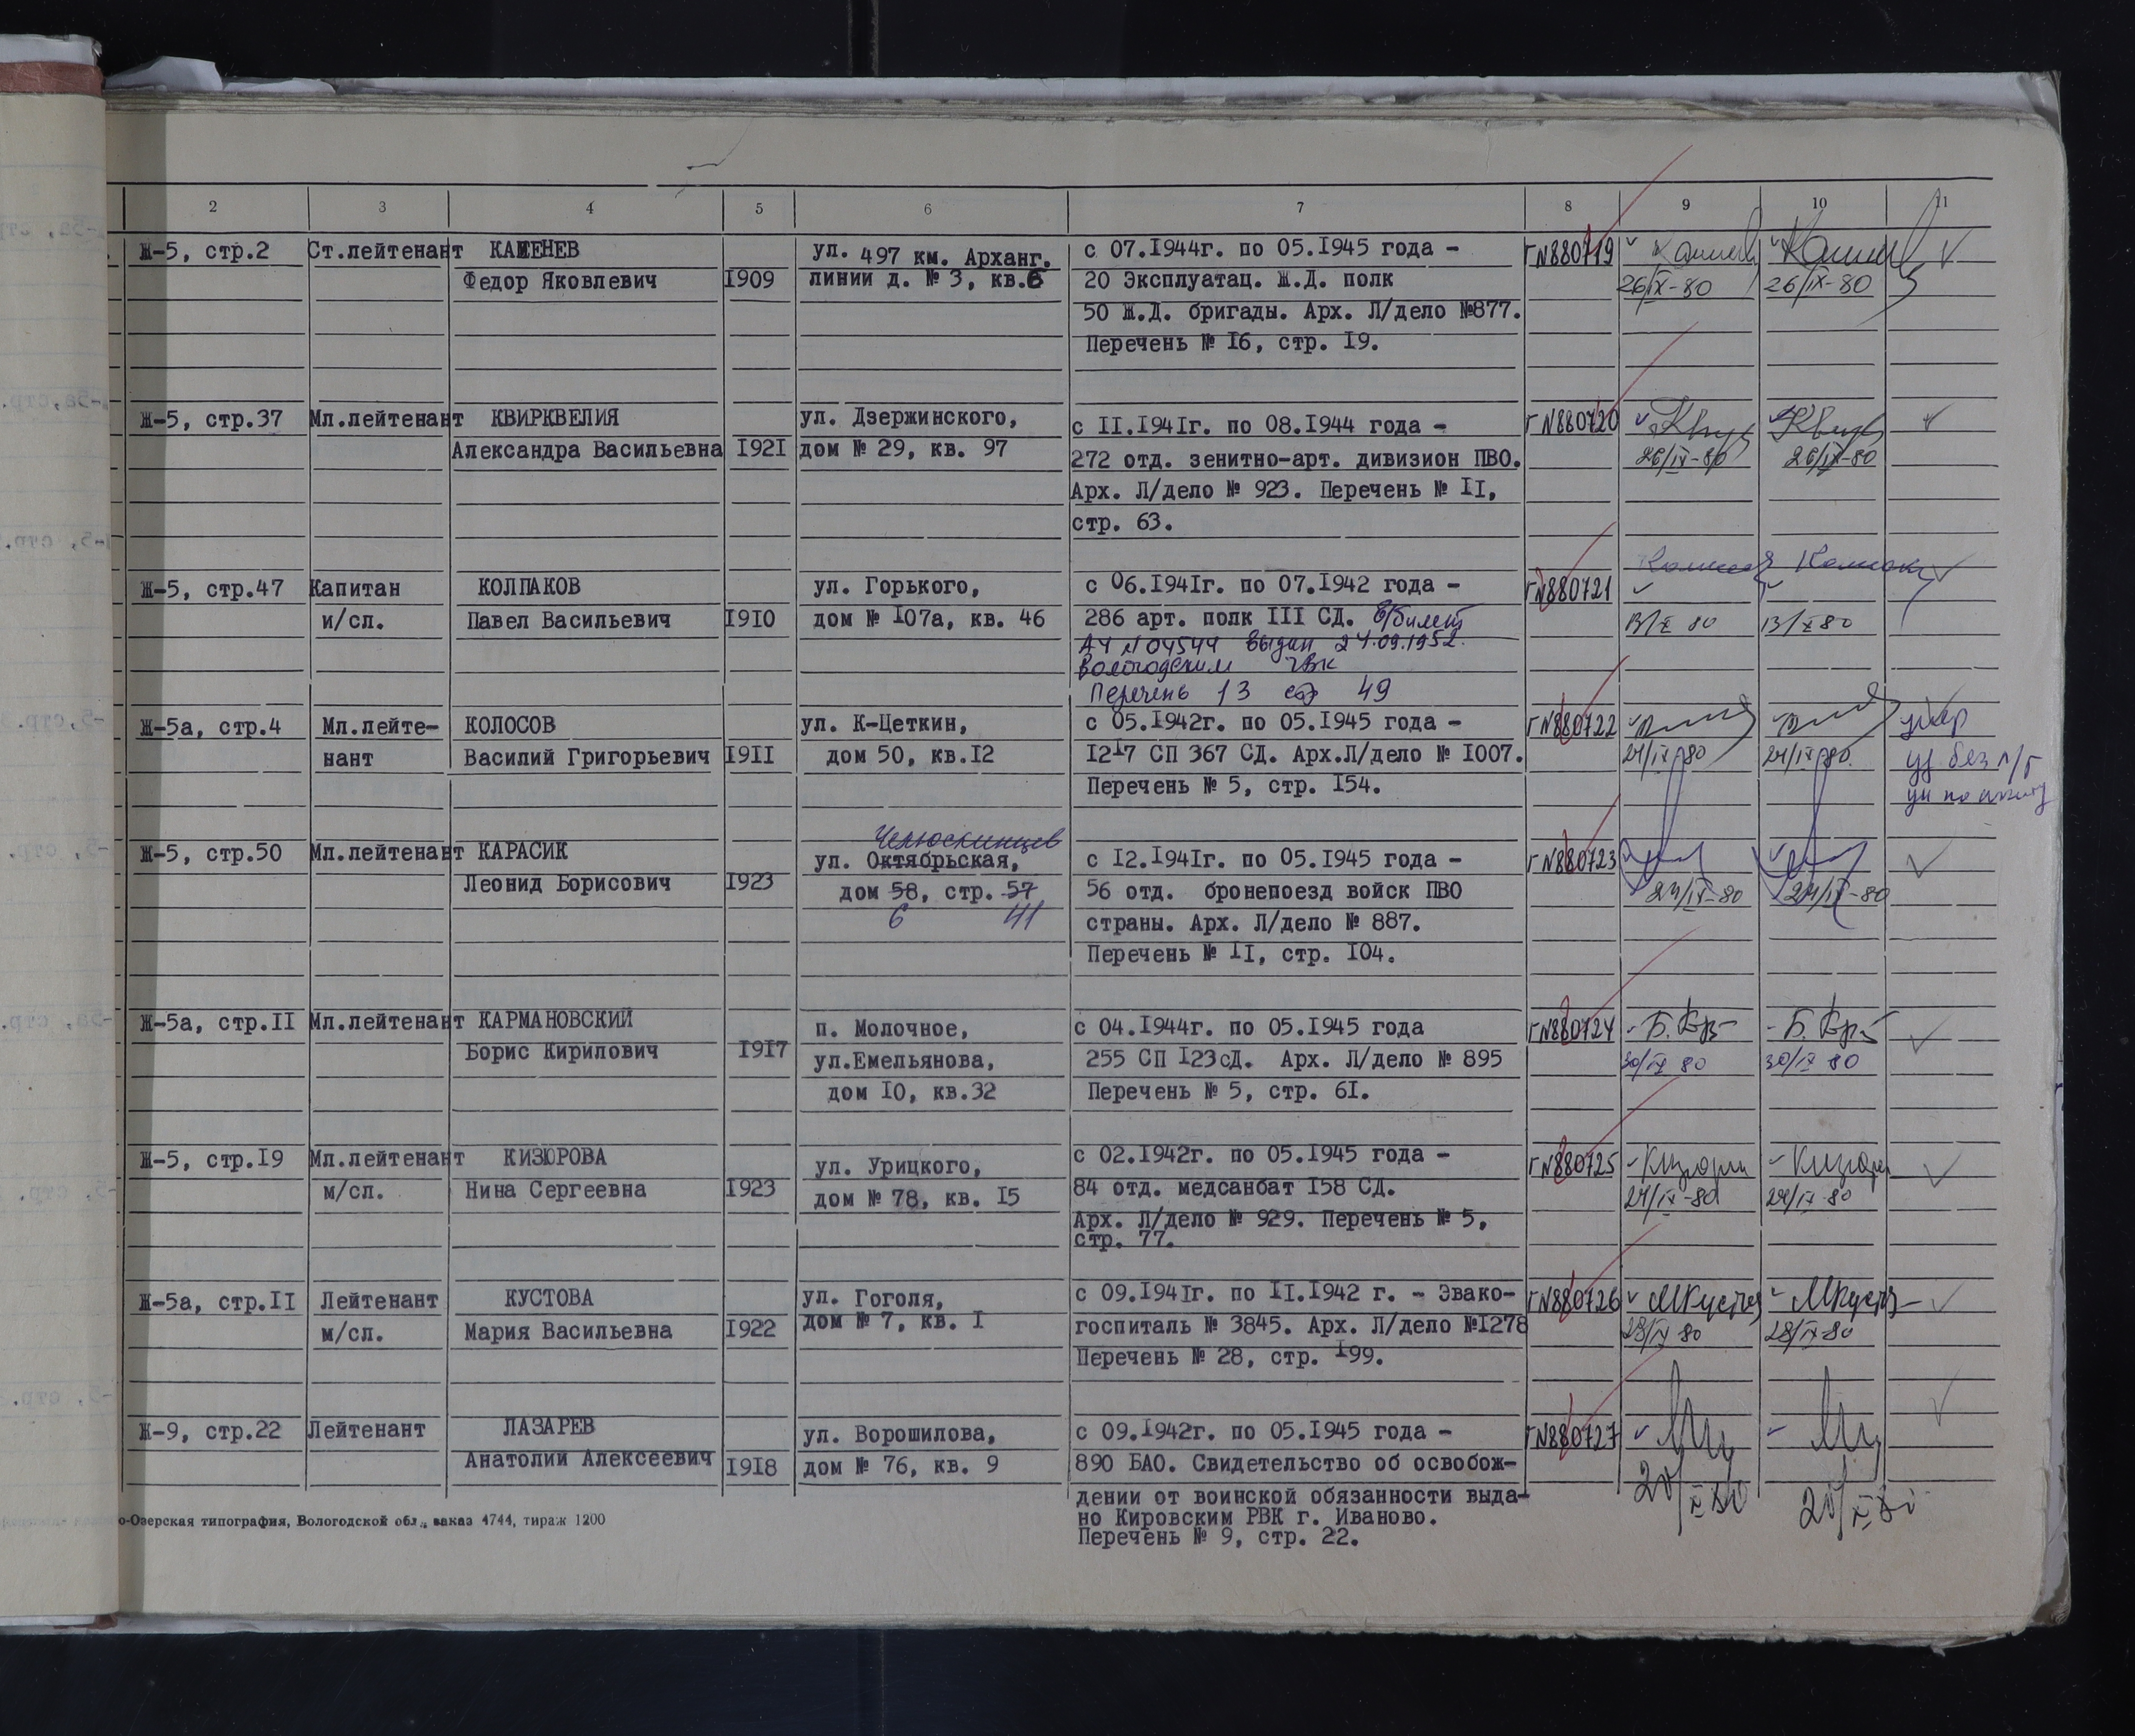 2 3 4 5 6 7 8 9 10 11
Ж-5, стр.2 Ст.лейтенант КАМЕНЕВ ул. 497 км. Арханг. с 07.1944г. по 05.1945 года – Г№880719
Федор Яковлевич 1909 линии д. № 3, кв.6 20 Эксплуатац. Ж.Д. полк 26/IX-80 26/IX-80
50 Ж.Д. бригады. Арх. Л/дело №877.
Перечень № 16, стр. 19.
Ж-5, стр.37 Мл.лейтенант КВИРКВЕЛИЯ ул. Дзержинского, с II.1941г. по 08.1944 года – Г№880720
Александра Васильевна 1921 дом № 29, кв. 97 272 отд. зенитно-арт. дивизион ПВО. 26/IX-80 26/IX-80
Арх. Л/дело № 923. Перечень № II,
стр. 63.
Ж-5, стр.47 Капитан КОЛПАКОВ ул. Горького, с 06.1941г. по 07.1942 года – Г№880721
и/сл. Павел Васильевич 1910 дом № 107а, кв. 46 286 арт. полк III СД. В/билет 13/X 80 13/X 80
АЧ №04544 выдан 24.09.1952.
Вологодским ГВК
Перечень 13 стр 49
Ж-5а, стр.4 Мл.лейте- КОЛОСОВ ул. К-Цеткин, с 05.1942г. по 05.1945 года – Г№880722 умер
нант Василий Григорьевич 1911 дом 50, кв.12 1217 СП 367 СД. Арх.Л/дело № 1007. 24/IX-80 24/IX-80 уд без
Перечень № 5, стр. 154.
Челюскинцев
Ж-5, стр.50 Мл.лейтенант КАРАСИК ул. Октябрьская, с 12.1941г. по 05.1945 года – Г№880723
Леонид Борисович 1923 дом 58, стр. 57 56 отд. бронепоезд войск ПВО 24/IX-80 24/IX-80
6 41 страны. Арх. Л/дело № 887.
Перечень № II, стр. 104.
Ж-5а, стр.II Мл.лейтенант КАРМАНОВСКИЙ п. Молочное, с 04.1944г. по 05.1945 года Г№880724
Борис Кирилович 1917 ул.Емельянова, 255 СП 123сД. Арх. Л/дело № 895 30/IX 80 30/IX 80
дом 10, кв.32 Перечень № 5, стр. 61.
Ж-5, стр.19 Мл.лейтенант КИЗЮРОВА ул. Урицкого, с 02.1942г. по 05.1945 года – Г№880725
м/сл. Нина Сергеевна 1923 дом № 78, кв. 15 84 отд. медсанбат 158 СД. 24/IX-80 24/IX-80
Арх. Л/дело № 929. Перечень № 5,
стр. 77.
Ж-5а, стр.II Лейтенант КУСТОВА ул. Гоголя, с 09.1941г. по II.1942 г. – Эвако- Г№880726
м/сл. Мария Васильевна 1922 дом № 7, кв. 1 госпиталь № 3845. Арх. Л/дело №1278 28/IX 80 28/IX 80
Перечень № 28, стр. 199.
Ж-9, стр.22 Лейтенант ЛАЗАРЕВ ул. Ворошилова, с 09.1942г. по 05.1945 года – Г№880727
Анатолии Алексеевич 1918 дом № 76, кв. 9 890 БАО. Свидетельство об освобож-
дении от воинской обязанности выда-
но Кировским РВК г. Иваново.
Перечень № 9, стр. 22.
о-Озерская типография, Вологодской обл., заказ 4744, тираж 1200